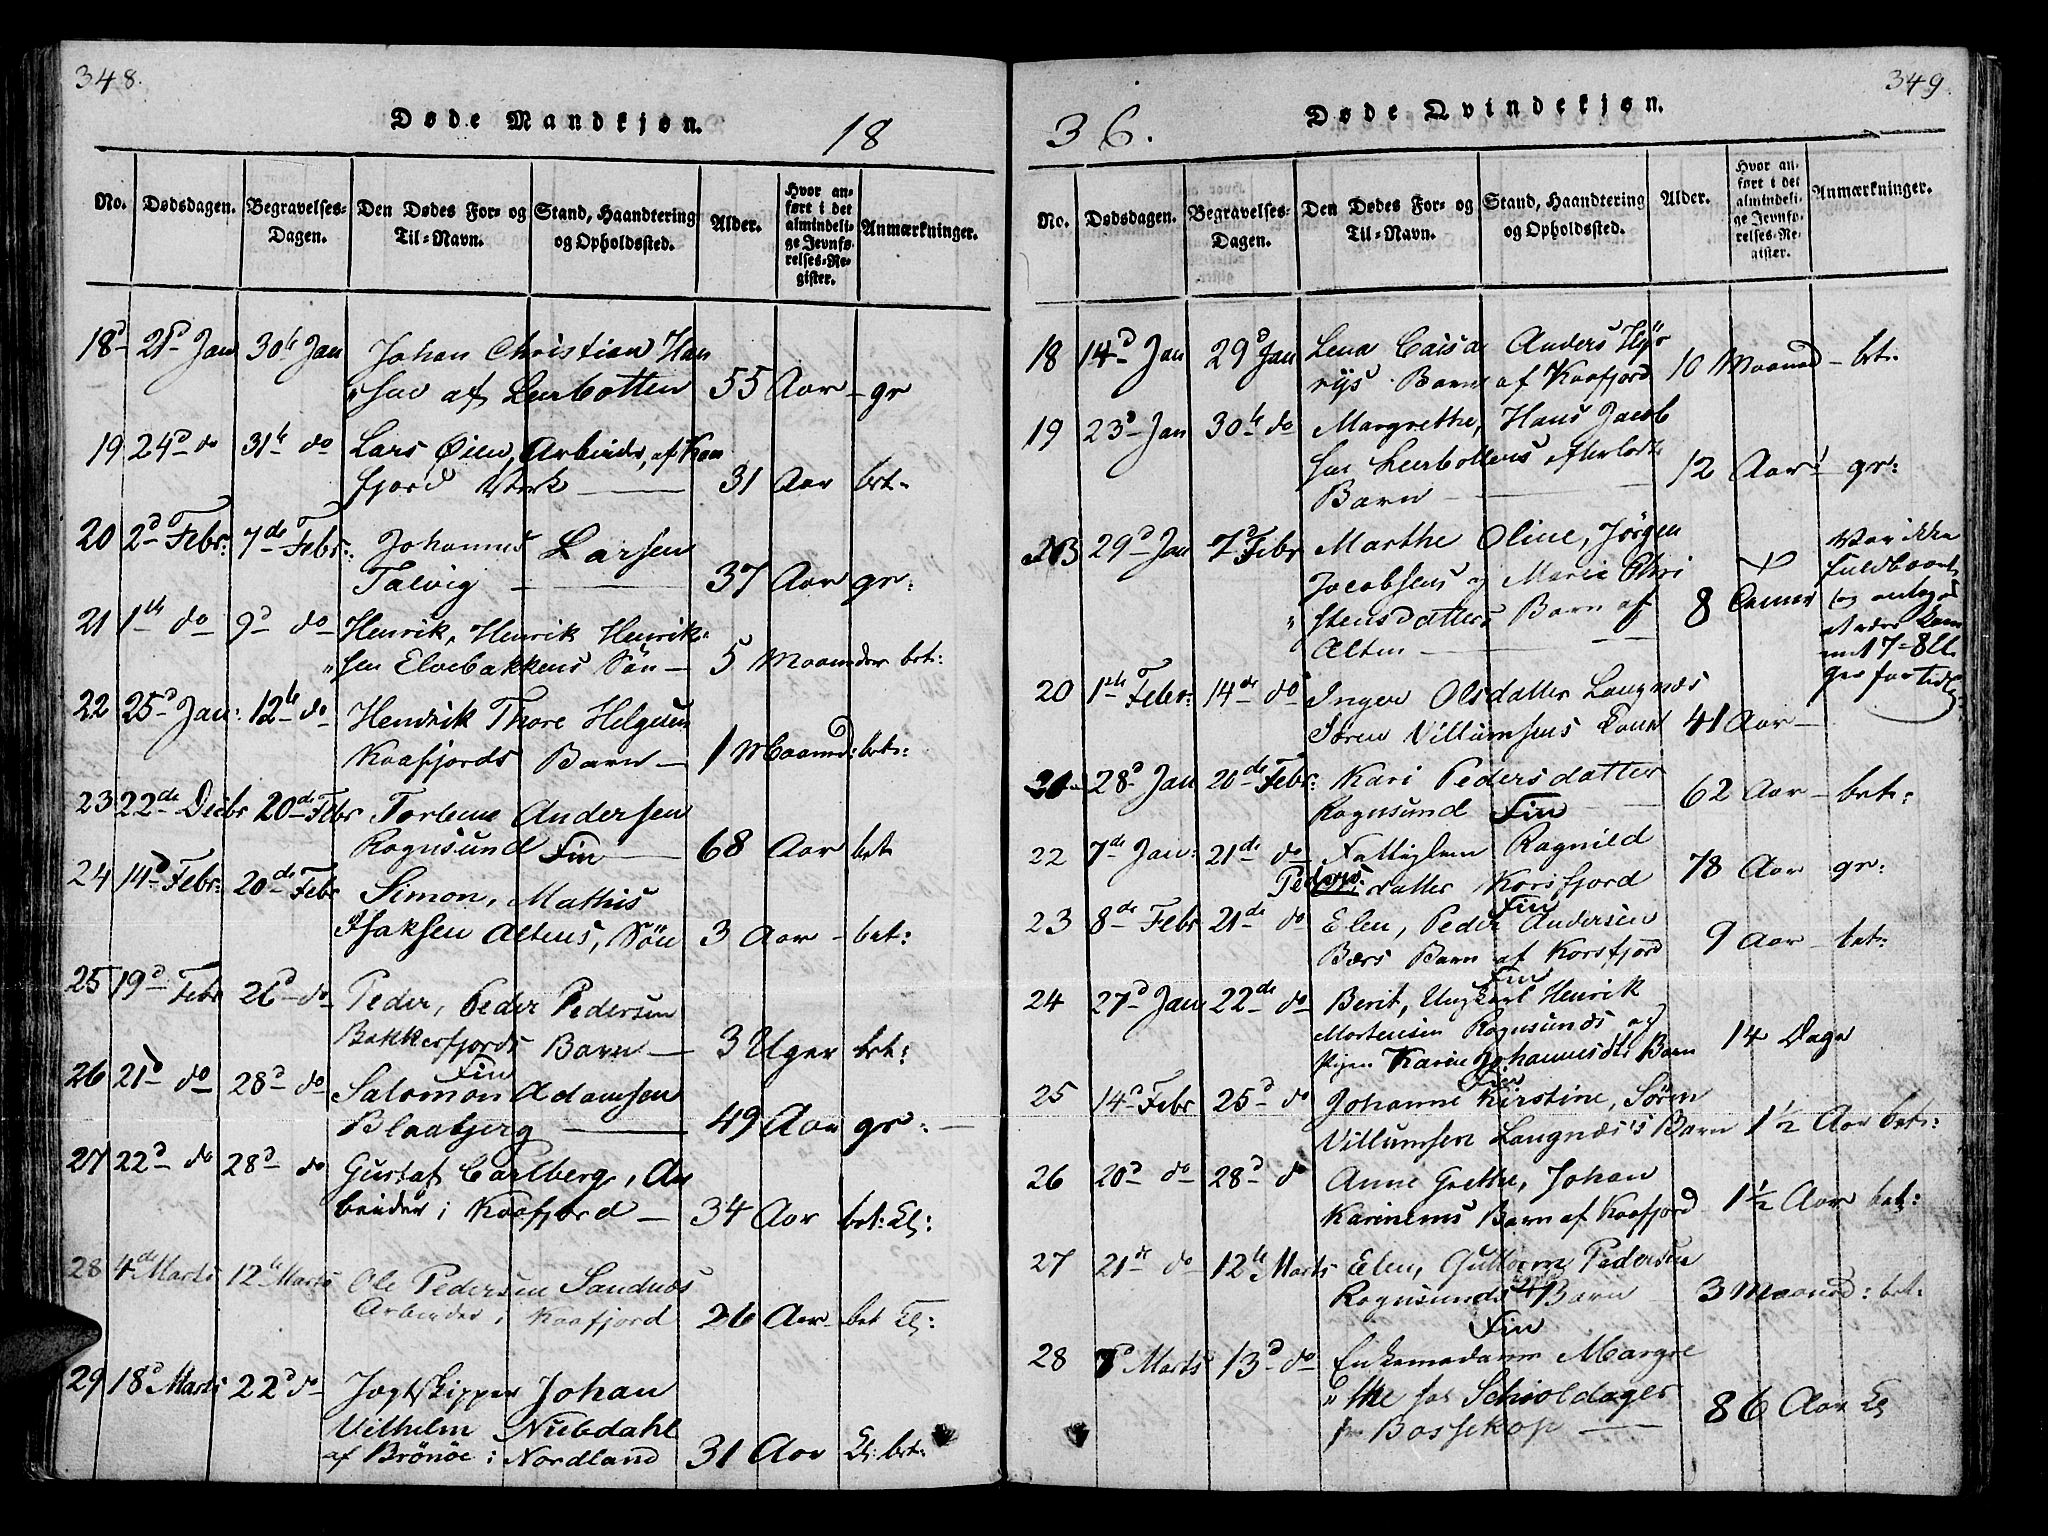 348.
Døde Mandkjøn.
18
No.
Dødsdagen.
Begravelses-
Dagen.
Den Dødes For- og
Til-Navn.
Stand, Haandtering
og Opholdssted.
Alder.
Hvor an-
ført i det
almindeli-
ge Jevnfø-
relses-Re-
gister.
Anmærkninger.
18 21d Jan 30te Jan Johan Christian Han
"sen af Leerbotten 55 Aar - gr
19 24d do 31te do Lars Øien, Arbeider, af Kaa
fjord Værk 31 Aar bet:
20 2d Febr: 7de Febr: Johannes Larsen
Talvig 37 Aar gr:
21 1ste do 9d do Henrik, Henrik Henrik-
"sen Elvebakkens Søn 5 Maaneder bet:
22 25d Jan: 12te do Hendrik Thore Helgesen
Kaafjords Barn 1 Maaned: bet:
23 22de Decbr 20de Febr Andersen
Rognsund Fin 68 Aar bet
24 14d Febr: 20de Febr Simon, Mathis
Isaksen Altens, Søn 3 Aar bet:
25 19d Febr 26d do Peder, Peder Pedersen
Bekkerfjords Barn 3 Uger bet:
Fin
26 21d do 28d do Salomon Adamsen
Blaabjerg 49 Aar gr:
27 22d do 28d do Gustaf Carlberg, Ar
beider i Kaafjord 34 Aar bet: El:
28 4de Marts 12te Marts Ole Pedersen Sandnæs
Arbeider i Kaafjord 26 Aar bet El:
29 18d Marts 22d do Jagtskipper Johan
Vilhelm Nubdahl
af Brønøe i Nordland 31 Aar El: bet:
349.
Døde Qvindekjøn.
36.
No.
Dødsdagen.
Begravelses-
Dagen.
Den Dødes For- og
Til-Navn.
Stand, Haandtering
og Opholdssted.
Alder.
Hvor an-
ført i det
almindeli-
ge Jevnfø-
relses-Re-
gister.
Anmærkninger.
18 14d Jan 29d Jan Lena Caisa Anders Hyø
rys Barn af Kaafjord 10 Maaned bet:
19 23d Jan 30te do Margrethe, Hans Jacob
sen Leerbottens efterladte
Barn 12 Aar gr:
NB 29d Jan 7d Febr Marthe Oline, Jørgen
Jacobsens og Marie Chri
"stensdatters Barn af
Alten 8 Timer
Var ikke
fuldbaaret
og antages
at være kom
met 7-8 U
ger for tidlig
20 1ste Febr: 14de do Inger Olsdatter Langnæs
Søren Villumsens Kone 41 Aar
21 28d Jan 20de Febr: Kari Pedersdatter
Rognsund Fin 62 Aar bet:
22 7de Jan: 21de do Ragnild
Peders: datter Korsfjord 78 Aar gr:
Fin
23 8de Febr 21de do Elen, Peder Andersen
Bærs Barn af Korsfjord 9 Aar bet:
Fin
24 27d Jan 22de do Berit, Ungkarl Henrik
Mortensen Rognsunds og
Pigen Karen Johannesdtrs Barn 14 Dage
Fin
25 14d Febr 25d do Johanne Kirstine, Søren
Villumsen Langnæs's Barn 1½ Aar bet:
26 20d do 28d do Anne Grethe, Johan
Karinems Barn af Kaafjord 1½ Aar bet:
27 21de do 12te Marts Elen, Guttorm Pedersen
Rognsunds Barn 3 Maaned: bet:
Fin
28 7d Marts 13d do Enkemadamm Margre
"the Schioldager
Bossekop 86 Aar El